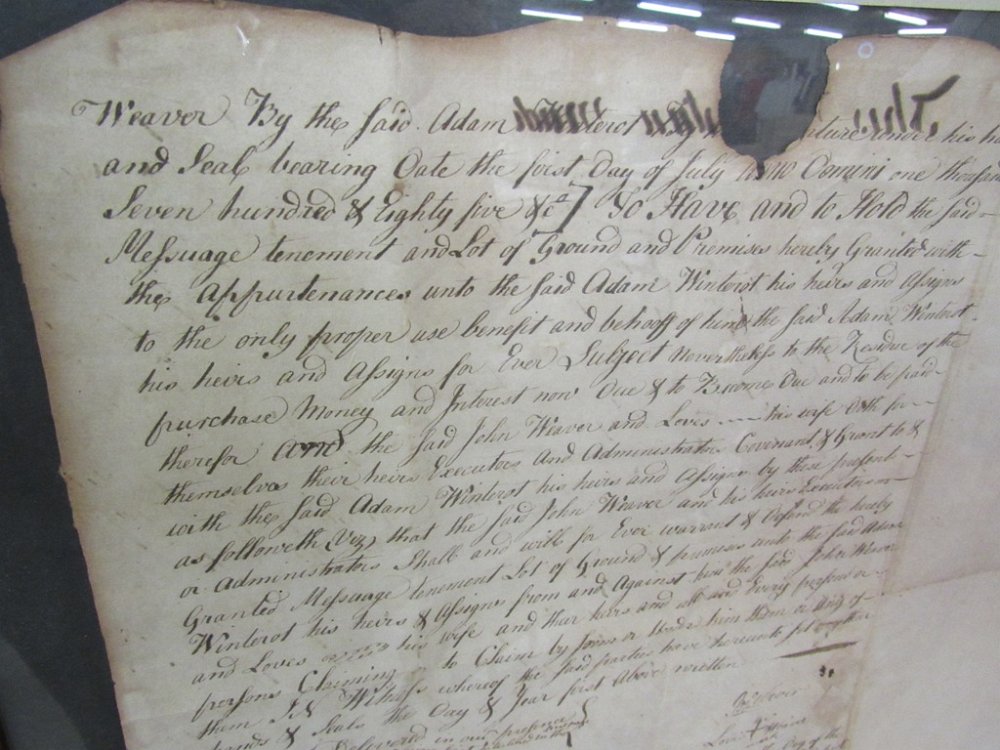 Weaver By the said Adam Winterot by ature under his ha
and Seal bearing Date the first Day of July Anno Domini one thousan
Seven hundred & Eighty five &ca] To Have and to Hold the said
Messuage tenement and Lot of Ground and Premises hereby Granted with
the Appurtenances unto the said Adam Winterot his heirs and Assigns
to the only proper use benefit and behoof of him the said Adam Winterot
his heirs and Assigns for Ever Subject nevertheless to the Residue of the
purchase Money and Interest now Due & to Become Due and to be paid
therefor And the said John Weaver and Loves his wife Doth for
themselves their heirs Executors and Administrators Covenant & Grant to &
with the said Adam Winterot his heirs and Assigns by these present
as followeth Viz, that the said John Weaver and his heirs Executors
or Administrators Shall and will for Ever warrant & Defend the hereby
Granted Messuage tenement Lot of Ground & premises unto the said Adam
Winterot his heirs & Assigns from and Against him the said John Weaver
and Loves his wife and their heirs and all and Every person or
persons Claiming or to Claim by from or Under him them or Any of
them IN Witness whereof the said parties have hereunto set together
hands & Seals the Day & Year first Above written
Delivered in our presence